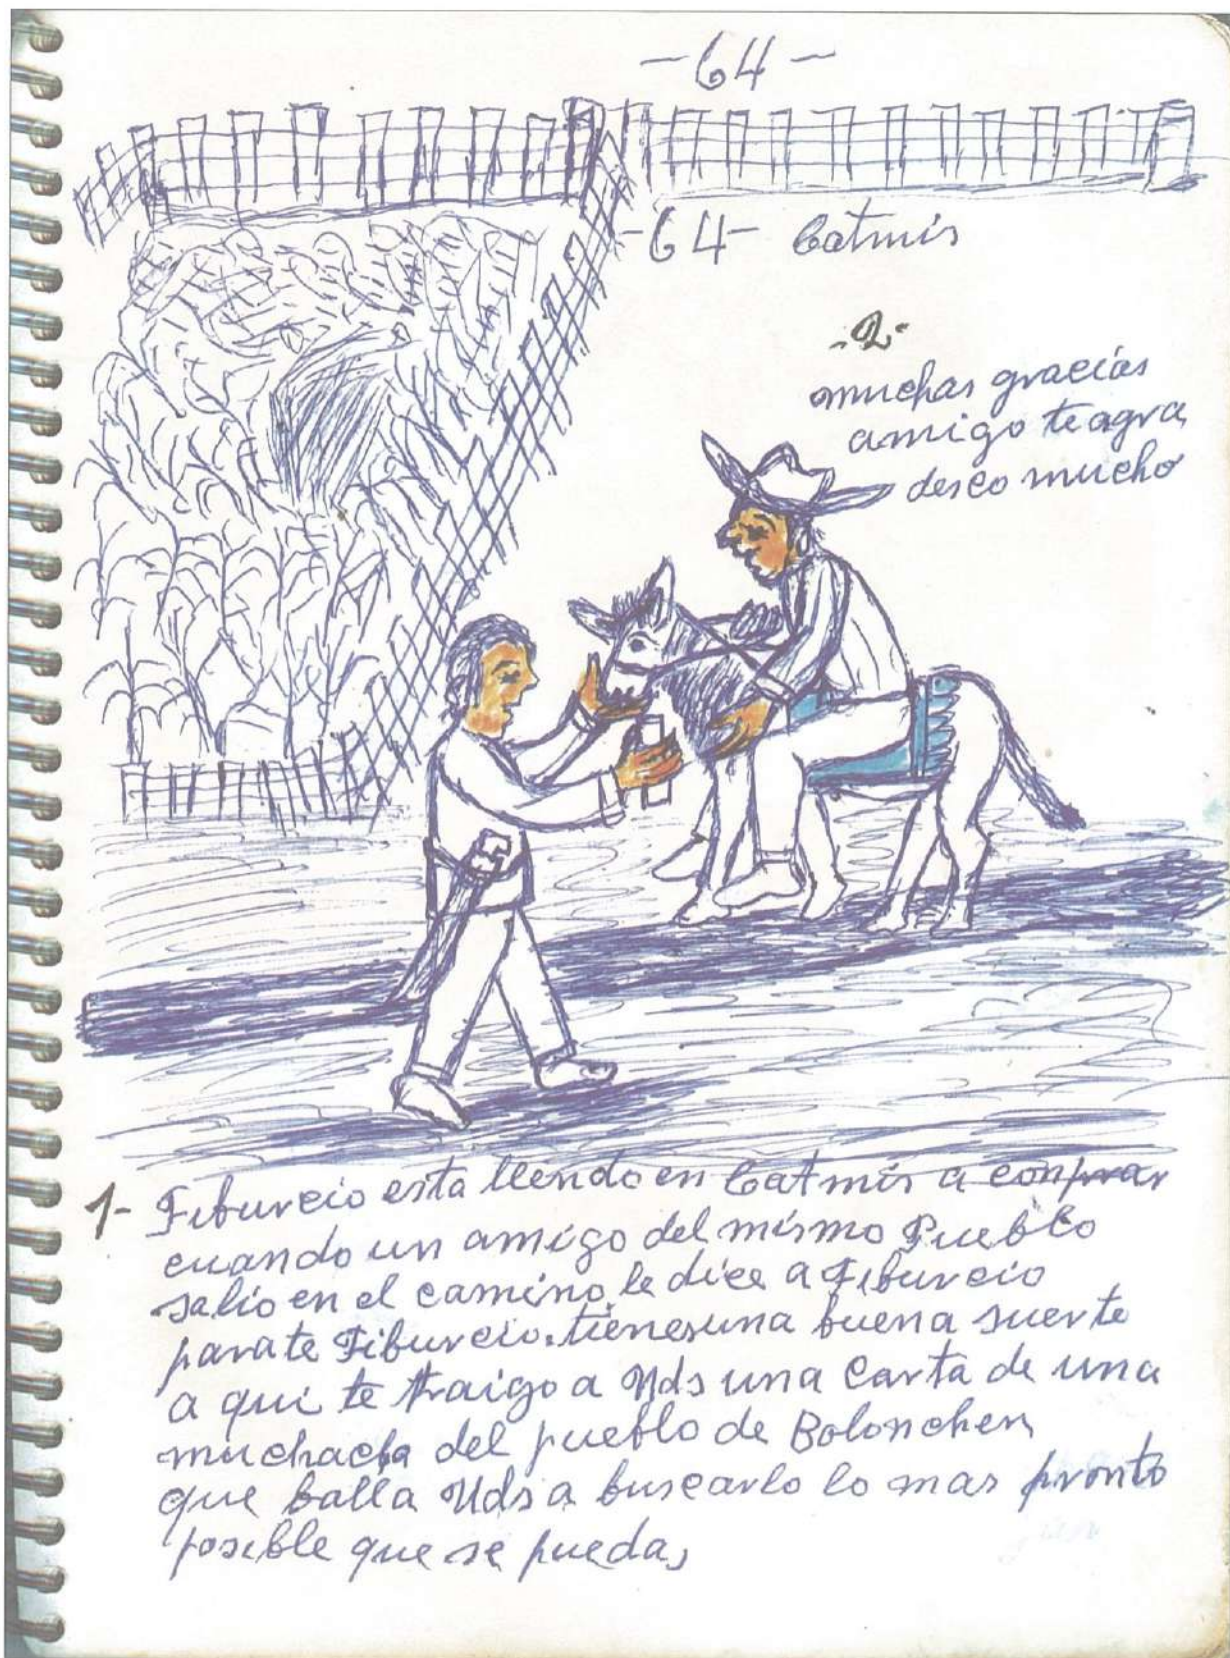 -64-
-64- Catmis
-2-
muchas gracias
amigo te agra
desco mucho
1- Fiburcio esta llendo en Catmis a conprar
cuando un amigo del mismo Pueblo
salio en el camino le dice a Fiburcio
parate Fiburcio. tienes una buena suerte
a qui te traigo a Uds una carta de una
muchacha del pueblo de Bolonchen
que balla Uds a buscarlo lo mas pronto
posible que se pueda,